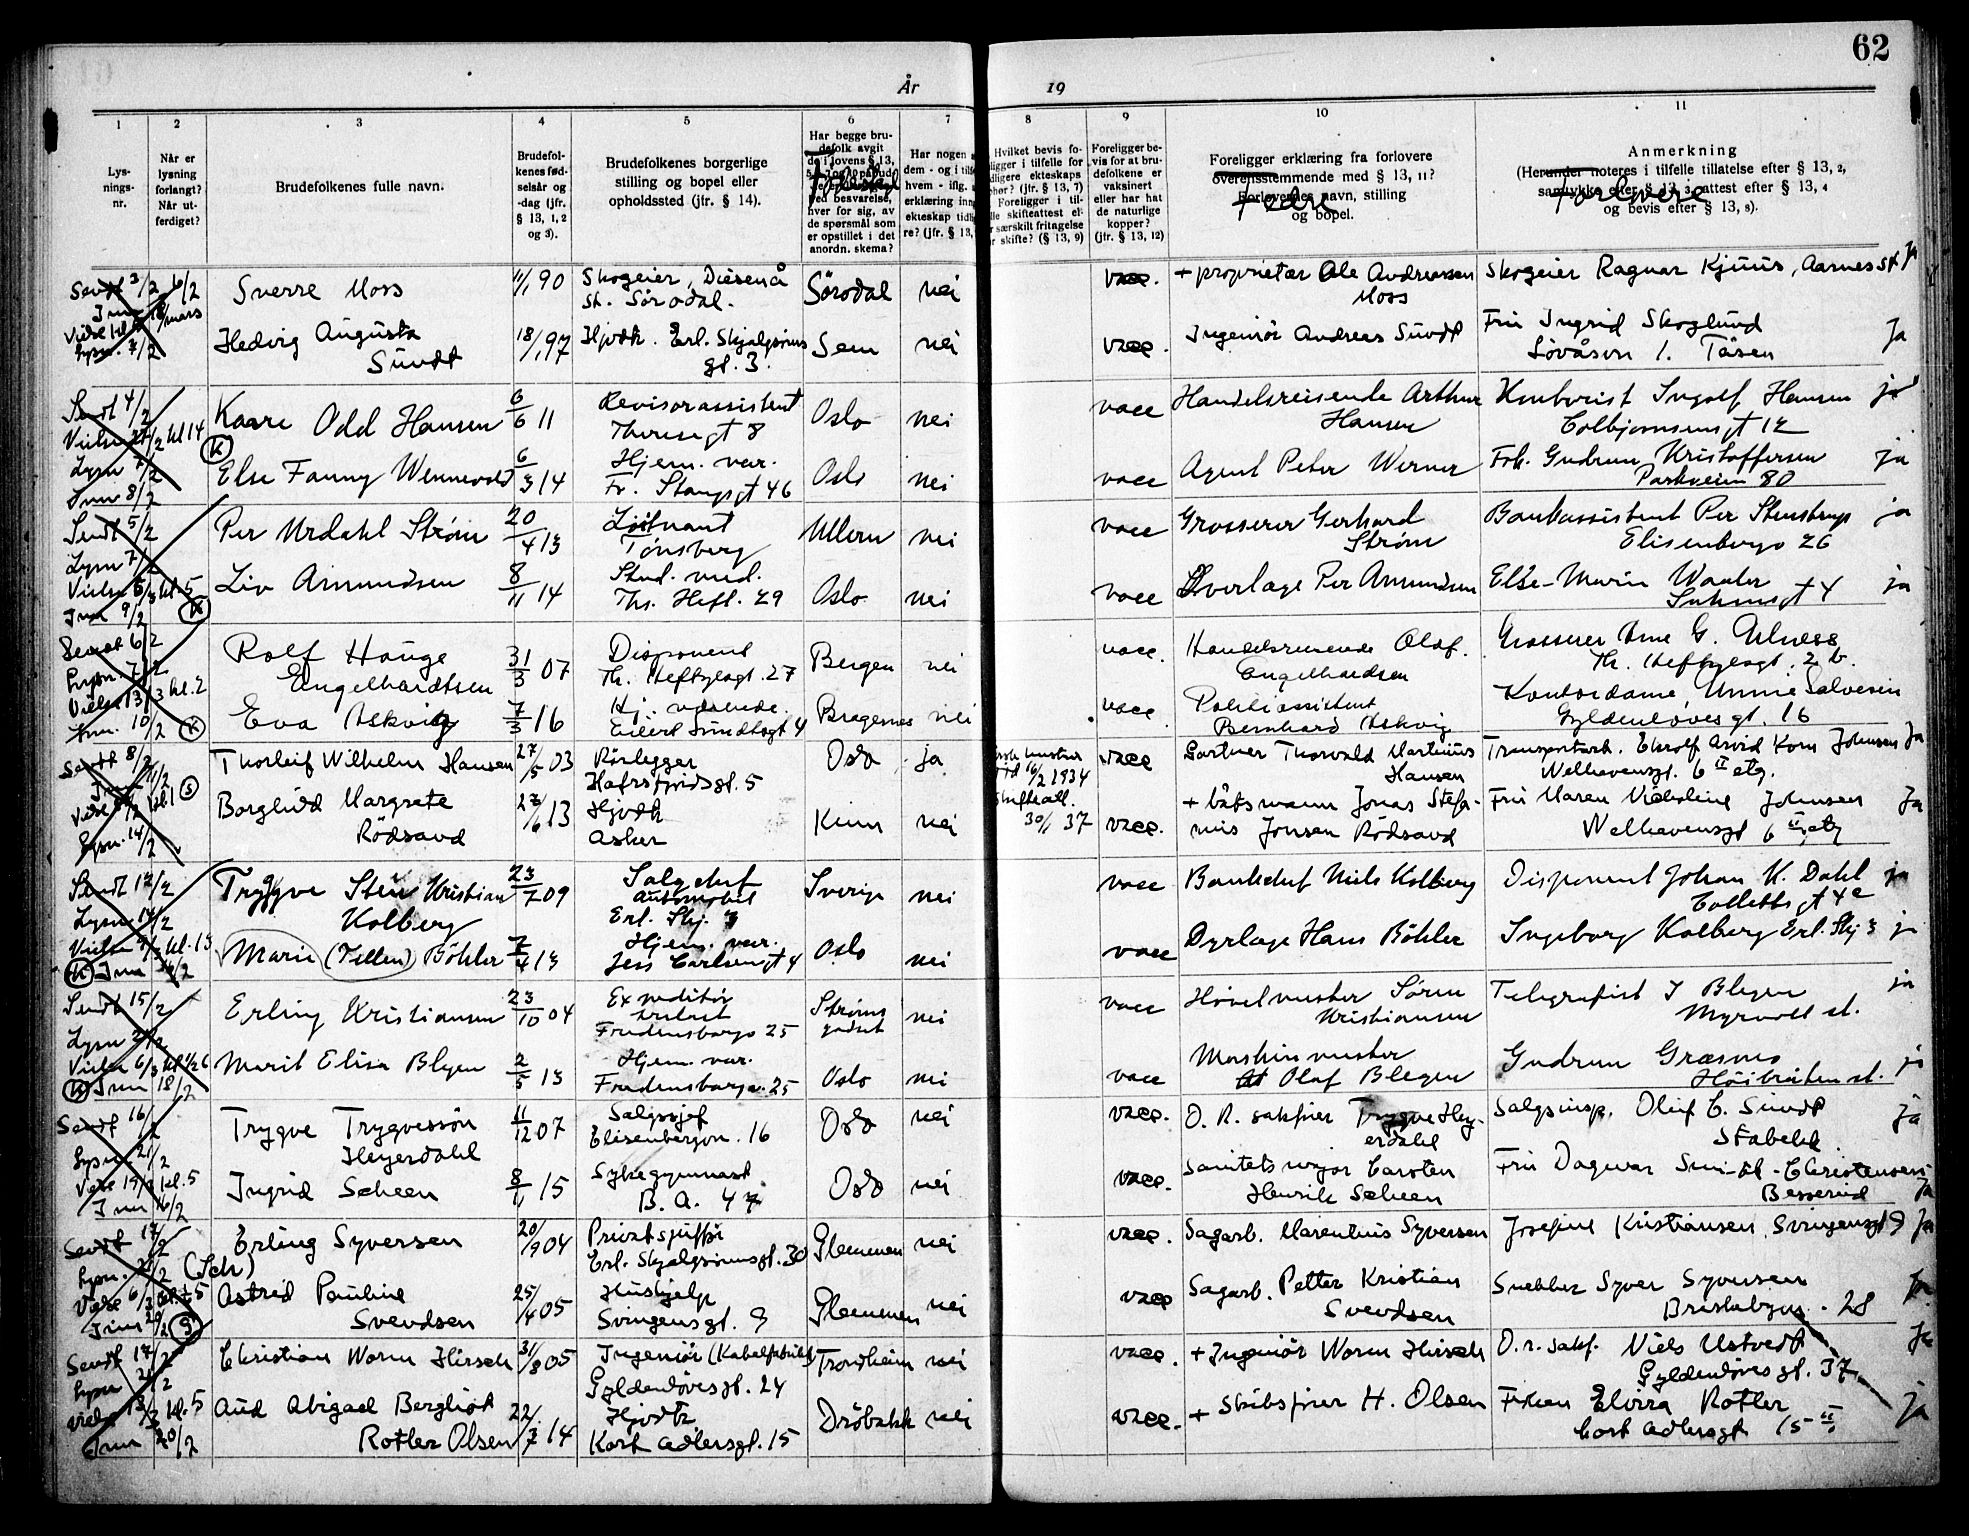 62
År 19
1 2 3 4 5 6 7 8 9 10 11
Lys-
nings-
nr.
Når er
lysning
forlangt?
Når ut-
ferdiget?
Brudefolkenes fulle navn.
Brudefol-
kenes fød-
selsår og
-dag (jfr.
§ 13, 1, 2
og 3).
Brudefolkenes borgerlige
stilling og bopel eller
opholdssted (jfr. § 14).
Har begge bru-
defolk avgit
de i lovens § 13,
ved besvarelse,
hver for sig, av
de spørsmål som
er opstillet i det
anordn. skema?
Fødested
Har nogen a
dem - og i tilf
hvem - iflg. a
erklæring inng
ekteskap tidli
re? (jfr. § 13,
Hvilket bevis fo-
ligger i tilfelle for
dligere ekteskaps
hør? (jfr. § 13, 7)
Foreligger i til-
lle skifteattest el-
r særskilt fritagelse
r skifte? (§ 13, 9)
Foreligger be-
vis for at bru-
defolkene er
vaksinert
eller har hat
de naturlige
kopper?
(jfr. § 13, 12)
Foreligger erklæring fra forlovere
overensstemmende med § 13, 11?
Forlovernes navn, stilling
og bopel.
Fedre
Anmerkning
(Herunder noteres i tilfelle tillatelse efter § 13, 2,
samtykke efter § 13, 3, attest efter § 13, 4
og bevis efter § 13, 8).
Forlovere
Sendt 3/2 6/2
Sverre Moss 11/1 90 Skogeier, Disenå
st. Sørodal. Sørodal nei vacc. + proprietær Ole Andreassen
Moss Skogeier Ragnar Kjuus, Aarnes st Ja
Lysn. 7/2
Hedvig Augusta
Sundt 18/1 97 Hjvdt. Erl. Skjalgssøns
gt. 3. Sem nei vacc. Ingeniør Andreas Sundt Fru Ingrid Skoglund
Tåsen Ja
Sendt 4/2
Kaare Odd Hansen 6/6 11 Revisorassistent
Theresegt 8 Oslo nei vacc Handelsreisende Arthur
Hansen Ingolf Hansen
Colbjørnsensgt 12 ja
Lysn 7/2
8/2
Else Fanny Wennevold 6/3 14 Hjem. vær.
Fr. Stangsgt 46 Oslo nei vacc Agent Peter Werner Frk. Gudrun Kristoffersen
Parkveien 80 ja
Sendt 5/2
Lysn 7/2
Per Urdahl Strøm 20/4 13 Løitnant
Tønsberg Ullern nei vacc Grosserer Gerhard
Strøm Bankassistent Per Stenstrup
Elisenbergv 26 ja
9/2 (K)
Liv Amundsen 8/11 14 Stud. med.
Ths. Heft. 29 Oslo nei vacc Overlæge Per Amundsen Else-Marie Waaler
Suhmsgt 4 ja
Sendt 6/2
Lysn. 7/2
Rolf Hauge
Engelhardtsen 31/3 07 Disponent
Th. Heftyesgt. 27 Bergen nei vacc. Handelsreisende Olaf.
Engelhardsen Grosserer Arne G. Ulness
Th. Heftyesgt. 2 b.
Vielse 13/3 kl. 2
10/2 (K)
Eva Askvig 7/3 16 Hj. værende.
Eilert Sundtsgt 4 Bragernes nei vacc. Politiassistent
Bernhard Askvig Kontordame Unnie Salvesen
Gyldenløves gt. 16
Sendt 8/2
Thorleif Wilhelm Hansen 27/5 03 Rørlegger
Hafrsfjordsgt. 5 Oslo ja
16/2 1934 vacc Gartner Thorvald Martinius
Hansen Transportarb. Arvid Korn Johnsen
Welhavensgt. 6 II etg. Ja
Lysn. 14/2
Borghild Margrete
Rødsand 6 13 Hjvdt
Asker Kinn nei
30/1 37 vacc. + båtsmann Jonas Stefa-
nius Jonsen Rødsand Fru Maren Johnsen
Welhavensgt 6 II etg Ja
Sendt 12/2
Lysn 14/2
Tryggve Sten Kristian
Kolberg 23/7 09 Salgschef
automobil
Erl. Skj. 3 Sverige nei vacc Bankchef Niels Kolberg Disponent Johan K. Dahl
Collettsgt 4c ja
(K)
Marie (Tellen) Böhler 7/4 13 Hjem. vær.
Jess Carlsensgt 4 Oslo nei vacc Dyrlæge Hans Böhler Ingeborg Kolberg Erl. Skj 3 ja
Sendt 15/2
Erling Kristiansen 23/10 04 Expeditør
Fredensborgv 25 Strøms
godset nei vacc Høvelmester Søren
Kristiansen Telegrafist I Blegen
Myrvoll st. ja
Vielse 6/3 kl 1/2 6
(K) 18/2
Marit Elisa Blegen 2/5 13 Hjem. vær.
Fredensborgv. 25 Oslo nei vacc Maskinmester
Olaf Blegen Gudrun Græsmo
Høibråten st. ja
Sendt 16/2
Lysn 21/2
Trygve Trygvessøn
Heyerdahl 11/12 07 Salgssjef
Elisenbergvn. 16 Oslo nei vacc. O. R. sakfører Trygve Hey-
erdahl Salgsinsp. Oluf C. Sundt
Stabekk Ja
16/2
Ingrid Scheen 8/11 15 Sykegymnast
B. A. 47 Oslo nei vacc. Sanitetsmajor Carsten
Henrik Scheen Fru Dagmar Sundt-Christensen
Besserud Ja
Sendt 17/2
Erling Syversen 20/9 04 Privatsjåfør
Erl. Skjalgssønsgt. 30 Glemmen nei vacc. Sagarb. Marentius Syversen Josefine Kristiansen, Svingensgt 9 Ja
(Sch)
Astrid Pauline
Svendsen 25/4 05 Hushjelp
Svingensgt. 9 Glemmen nei vacc Sagarb. Petter Kristian
Svendsen Snekker Syver Syversen
Briskebyvn. 28 Ja
Sendt 17/2
Lysn 21/2
Christian Worm Hirsch 31/8 05 Ingeniør (Kabelfabrikk)
Gyldenløvesgt. 24 Trondheim nei vacc. + Ingeniør Worm Hirsch O. r. sakf. Niels Ustvedt
Gyldenløvesgt. 37 Ja
20/2
Aud Abigael Bergliot
Rotler Olsen 22/7 14 Hjvdt
Kort Adlersgt. 15 Drøbakk nei vacc. + Skibsfører H. Olsen Frøken Elvira Rotler
Cort Adlersgt 15 Ja